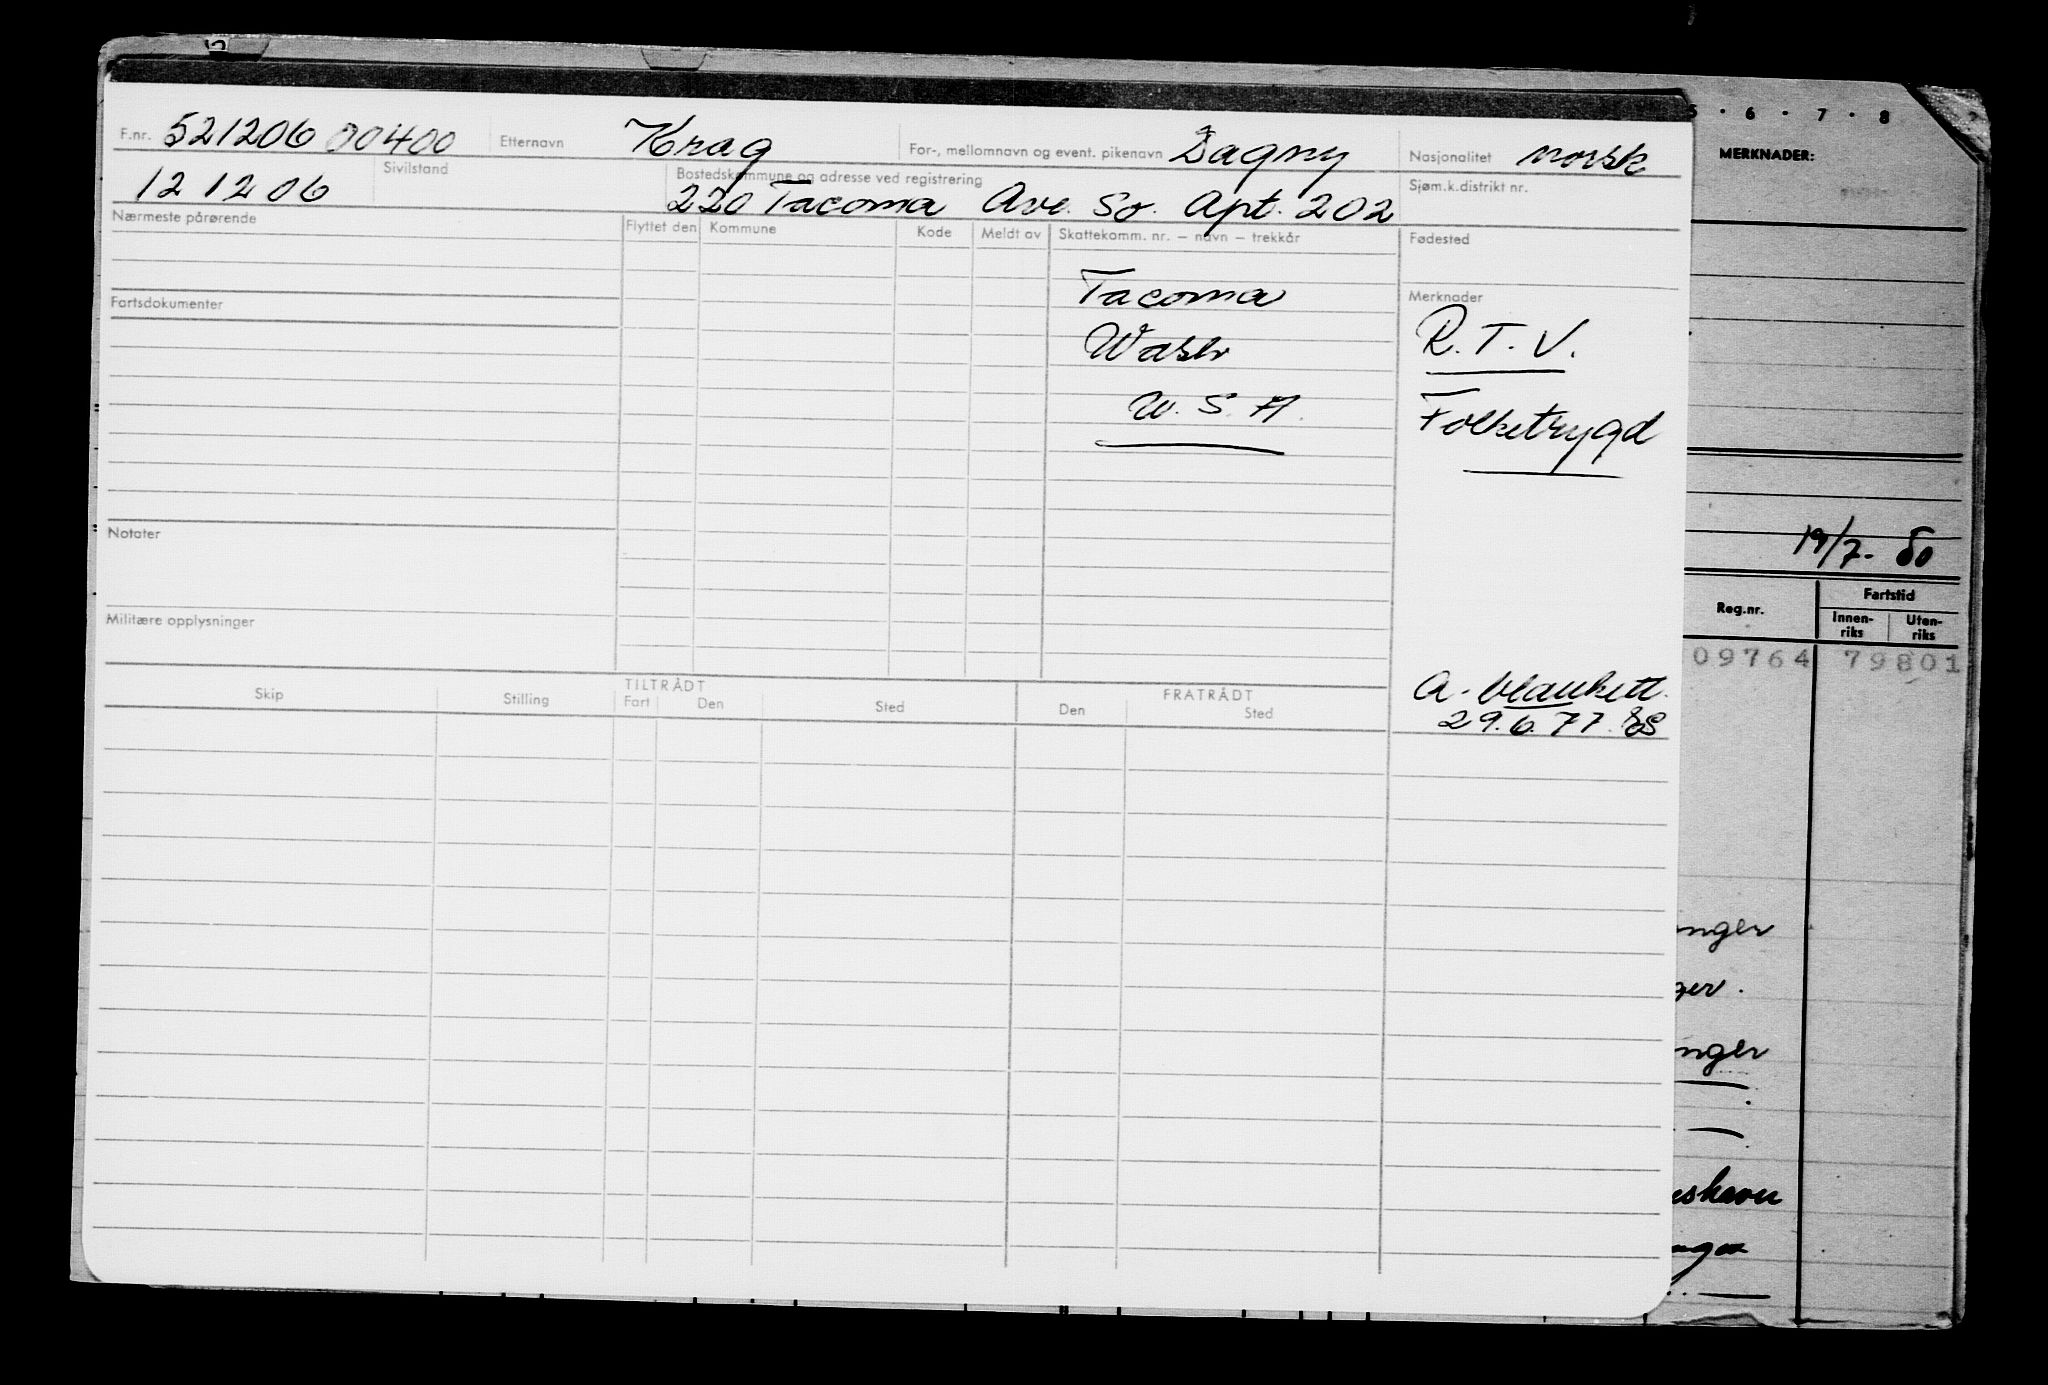 F.nr. 521206 00400 Etternavn Krag For-, mellomnavn og event. pikenavn Dagny Nasjonalitet norsk
12 12 06 Sivilstand Bostedskommune og adresse ved registrering Sjøm.k.distrikt nr.
220 Tacoma Ave. So. Apt. 202
Nærmeste pårørende Flyttet den Kommune Kode Meldt av Skattekomm. nr. – navn – trekkår Fødested
Tacoma
Fartsdokumenter Merknader
Wash R. T. V.
U. S. A. Folketrygd
Notater
Militære opplysninger
A-blankett.
29.6.77.
TILTRÅDT FRATRÅDT
Skip Stilling Fart Den Sted Den Sted
5 · 6 · 7 · 8
MERKNADER:
19/7- 80
Reg.nr. Fartstid
Innen-riks Uten-riks
09764 79801
nger
ger.
nger